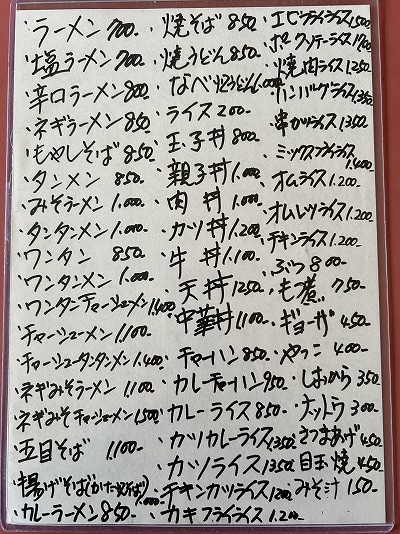 ・ラーメン 700.
・塩ラーメン 700.
・辛口ラーメン 800
・ネギラーメン 850
・もやしそば 850.
・タンメン 850.
・みそラーメン 1.000-
・タンタンメン 1.000-
・ワンタン 850
・ワンタンメン 1.000-
・ワンタンチャーシューメン 1.400
・チャーシューメン 1.100.
・チャーシュータンタンメン 1.400-
・ネギみそラーメン 1.100
・ネギみそチャーシューメン 1.500
・五目そば 1.100-
・揚げそば(かたやきそば) 1.000-
・カレーラーメン 850-
・焼そば 850-
・焼うどん 850-
・なべ焼うどん 1.000
・ライス 200-
・玉子丼 800-
・親子丼 1.000-
・肉丼 1.000-
・カツ丼 1.200
・牛丼 1.100-
・天丼 1250-
・中華丼 1.100
・チャーハン 850-
・カレーチャーハン 950
・カレーライス 850-
・カツカレーライス 1350
・カツライス 1350
・チキンカツライス 1200
・カキフライライス 1.200-
・エビフライライス 1.500
・ポークソテーライス
・焼肉ライス 1.250
・ハンバーグライス 1.350
・串カツライス 1.350
・ミックスフライライス 1.400
・オムライス 1.200-
・オムレツライス 1.200
・チキンライス 1.200
・ぶつ 800-
・もつ煮 750
・ギョーザ 450
・やっこ 400-
・しおから 350
・ナットウ 300-
・さつまあげ 450
・目玉焼 450
・みそ汁 150-